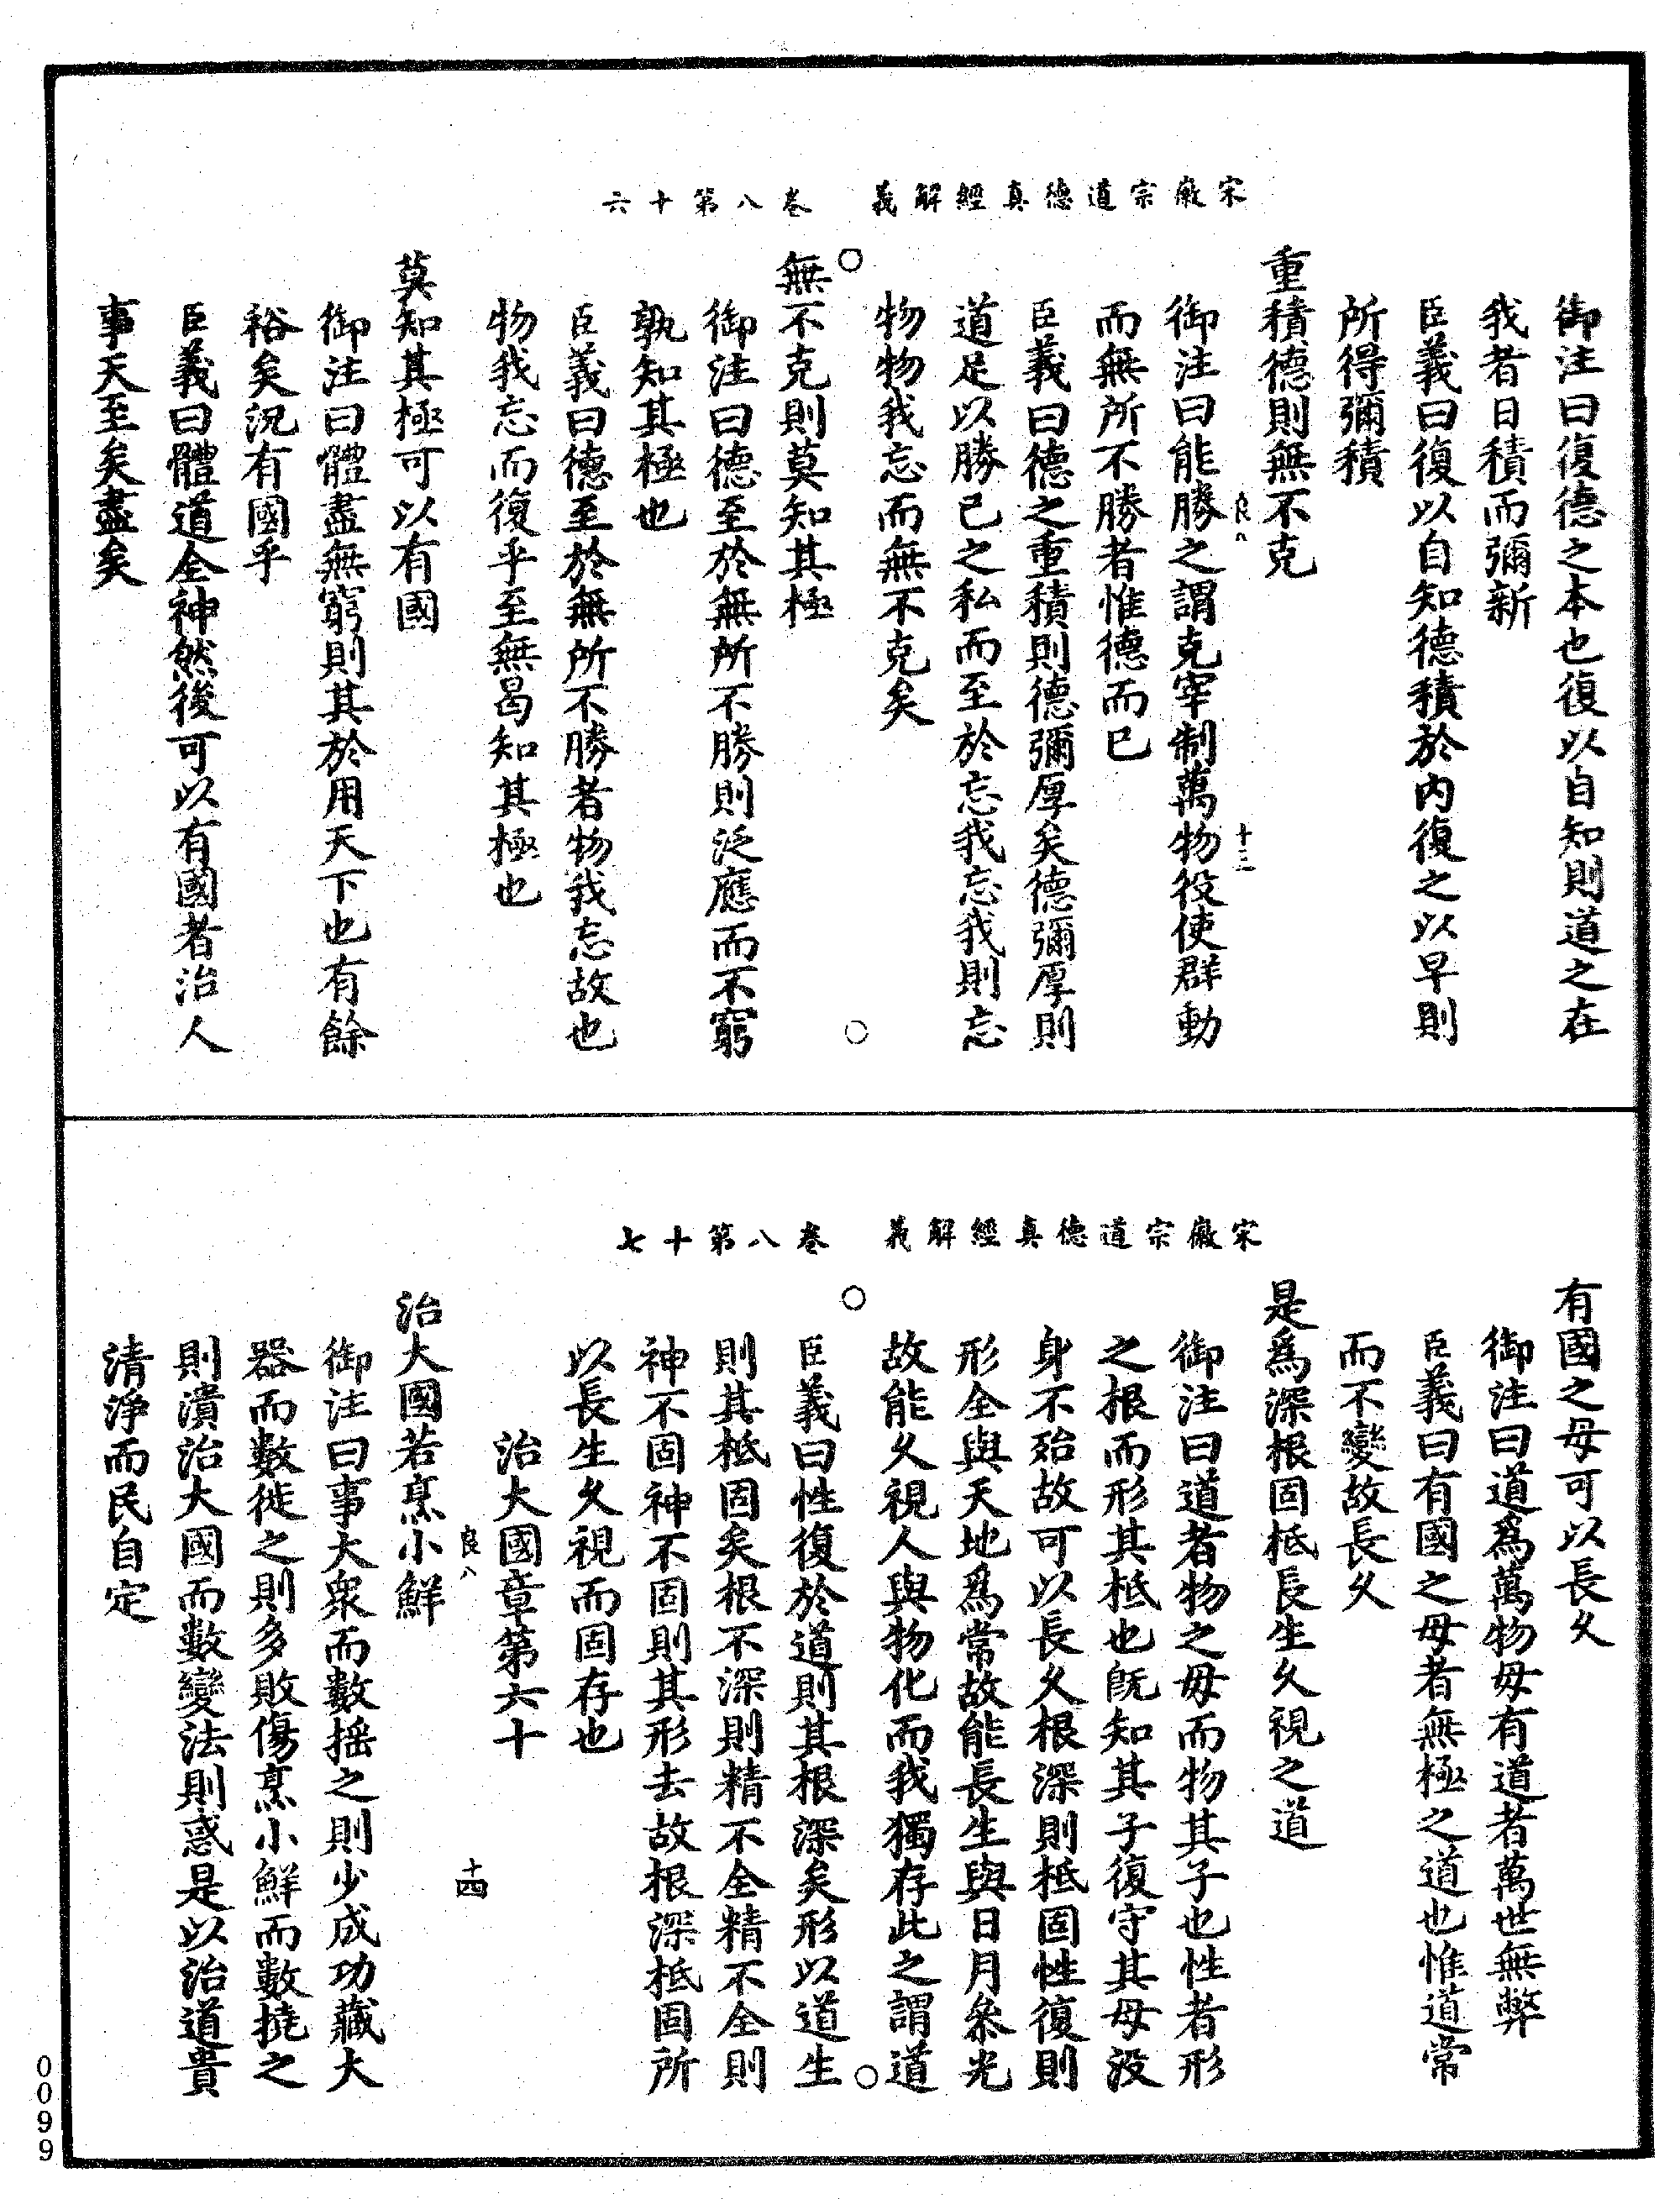 宋徽宗道德真經解義　卷八第十六
御注曰復德之本也復以自知則道之在
我者日積而彌新
臣義曰復以自知德積於内復之以早則
所得彌積
重積德則無不克
良八　十三
御注曰能勝之謂克宰制萬物役使群動
而無所不勝者惟德而已
臣義曰德之重積則德彌厚矣德彌厚則
道足以勝己之私而至於忘我忘我則忘
物物我忘而無不克矣
無不克則莫知其極
御注曰德至於無所不勝則泛應而不窮
孰知其極也
臣義曰德至於無所不勝者物我忘故也
物我忘而復乎至無曷知其極也
莫知其極可以有國
御注曰體盡無窮則其於用天下也有餘
裕矣況有國乎
臣義曰體道全神然後可以有國者治人
事天至矣盡矣
宋徽宗道德真經解義　卷八第十七
有國之母可以長久
御注曰道爲萬物母有道者萬世無弊
臣義曰有國之母者無極之道也惟道常
而不變故長久
是爲深根固柢長生久視之道
御注曰道者物之母而物其子也性者形
之根而形其柢也既知其子復守其母没
身不殆故可以長久根深則柢固性復則
形全與天地爲常故能長生與日月參光
故能久視人與物化而我獨存此之謂道
臣義曰性復於道則其根深矣形以道生
則其柢固矣根不深則精不全精不全則
神不固神不固則其形去故根深柢固所
以長生久視而固存也
治大國章第六十
良八　十四
治大國若烹小鮮
御注曰事大衆而數揺之則少成功藏大
器而數徙之則多敗傷烹小鮮而數撓之
則潰治大國而數變法則惑是以治道貴
清淨而民自定
0099